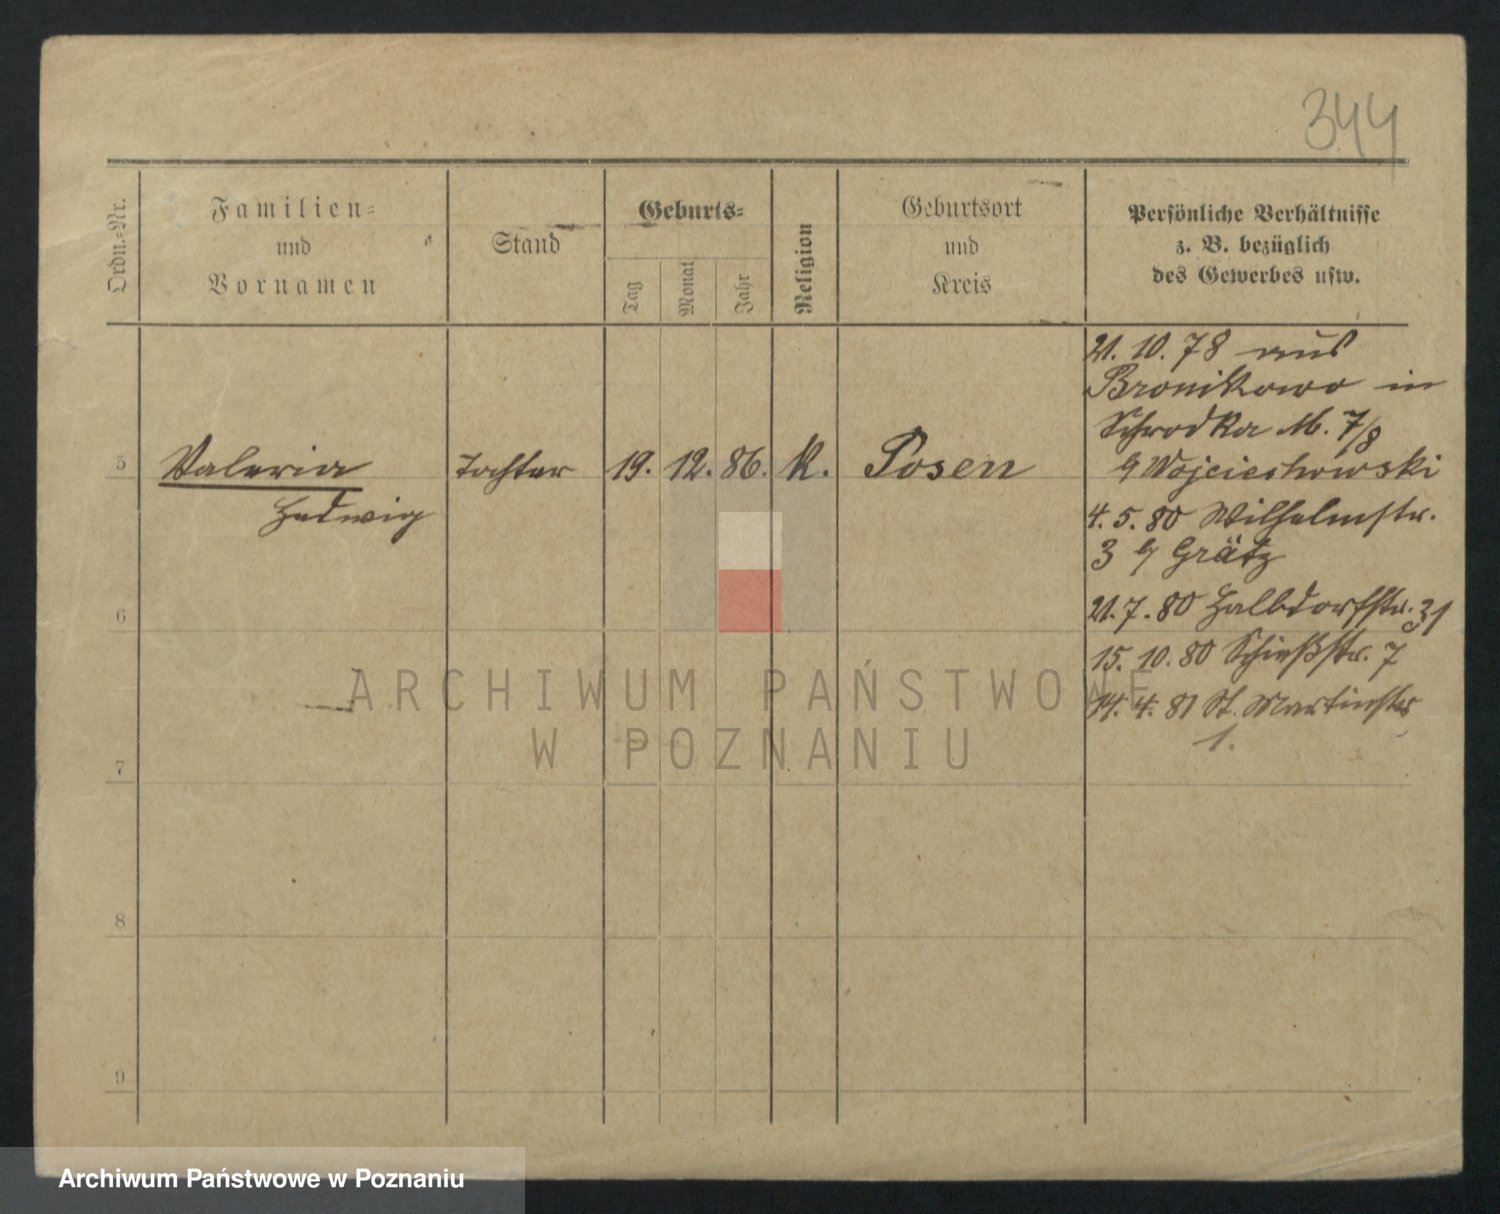 344
Ordn.-Nr.
Familien-
und
Vornamen
Stand
Geburts-
Tag
Monat
Jahr
Religion
Geburtsort
und
Kreis
Persönliche Verhältnisse
z. B. bezüglich
des Gewerbes usw.
5
Valeria
Hedwig
Tochter
19. 12. 86.
K.
Posen
21. 10. 78 aus
Bronikowo in
Schrodka M. 7/8
Wojciechowski
4. 5. 80 Wilhelmstr.
3 Grätz
21. 7. 80 Halbdorfstr. 31
15. 10. 80 Schießstr. 7
14. 4. 81 St. Martinstr
1.
6
7
8
9
ARCHIWUM PAŃSTWOWE
W POZNANIU
Archiwum Państwowe w Poznaniu